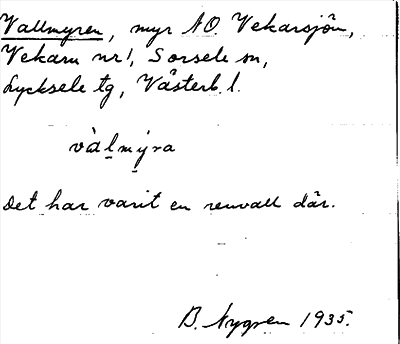 Vallmyren, myr NO Vekarsjön,
Vekarn nr 1, Sorsele sn,
Lycksele tg, Västerb. l.
vàlmýra
Det har varit en renvall där.
B. Nygren 1935.